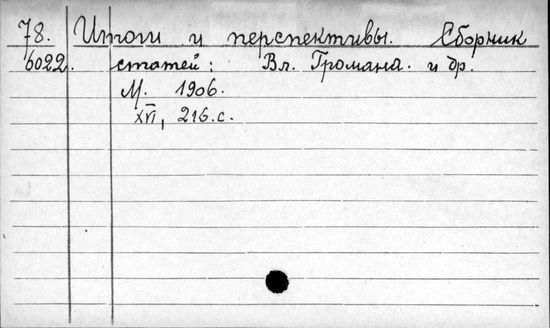 78. Итоги и перспективы. Сборник
6022. статей: Вл. Громана. и др.
М. 1906.
XVI, 216.с.